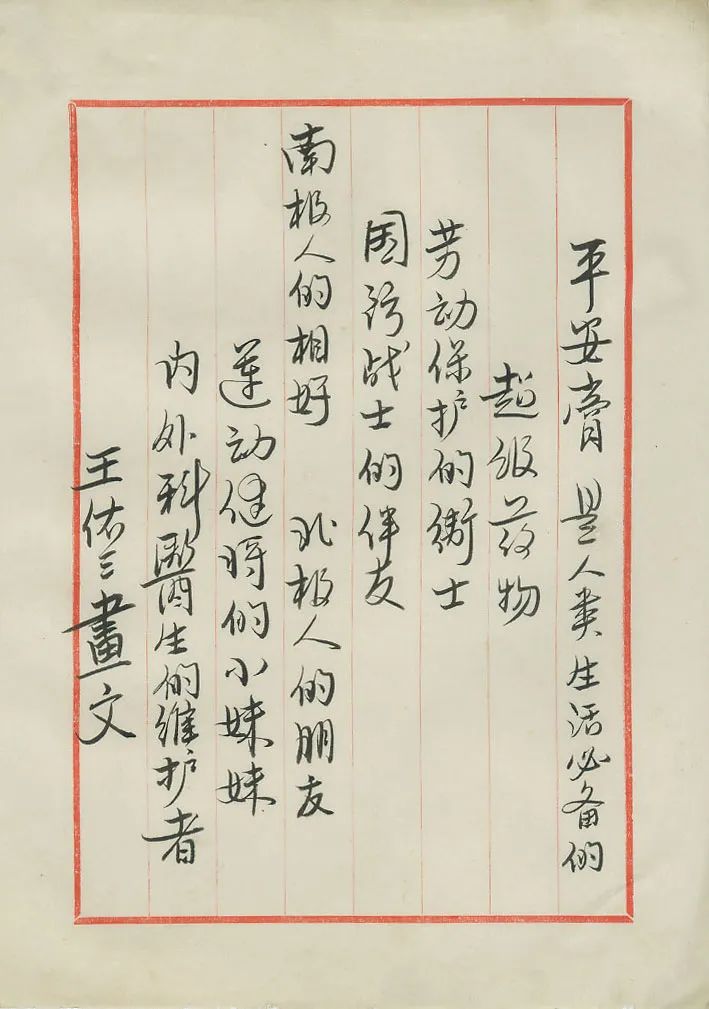 平安膏 是人类生活必备的
超级药物
劳动保护的衛士
国防战士的伴友
南极人的相好 北极人的朋友
运动健将的小妹妹
内外科醫生的维护者
王佑三畫文